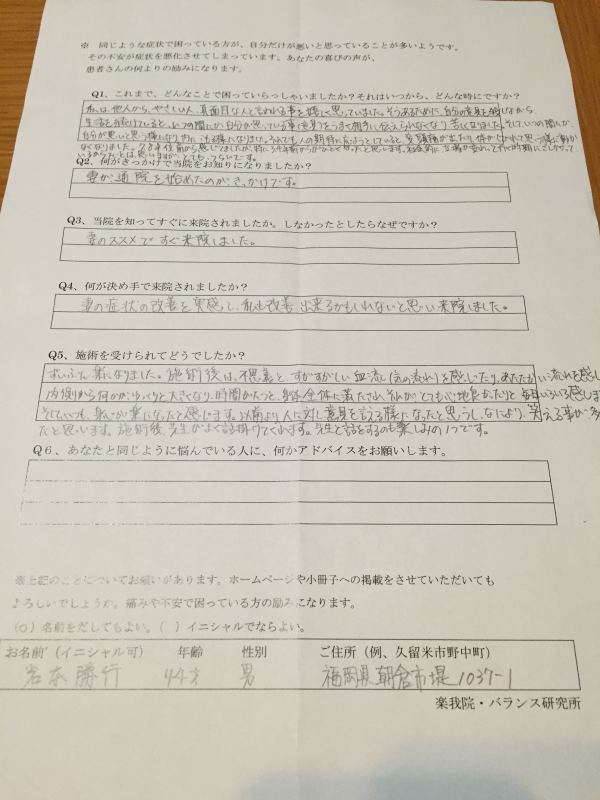 ※ 同じような症状で困っている方が、自分だけが悪いと思っていることが多いようです。
その不安が症状を悪化させてしまっています。あなたの喜びの声が、
患者さんの何よりの励みになります。
Q1、これまで、どんなことで困っていらっしゃいましたか？それはいつから、どんな時にですか？
私は、他人から、やさしい人、真面目な人と言われる事を嬉しく思っていました。そうあるために、自分の意見を押し殺しながら
生活を続けていると、いつの間にか、自分が思っている事（意見）をうまく相手に伝えられなくなり、苦しくなりました。そしていつの間にか、
自分が悪いと思う様になり
Q2、何がきっかけで当院をお知りになりましたか？
妻が通院を始めたのが、きっかけです。
Q3、当院を知ってすぐに来院されましたか。しなかったとしたらなぜですか？
妻のススメですぐ来院しました。
Q4、何が決め手で来院されましたか？
妻の症状の改善を実感し、私も改善出来るかもしれないと思い来院しました。
Q5、施術を受けられてどうでしたか？
ずいぶん楽になりました。施術後は、不思議と、すがすがしい血流（気の流れ）を感じたり、あたたかい流れを感じ
内側から何かがゆっくりと大きくなり、時間がたつと、身体全体に満たされ、それがとても心地良かったりと毎回いろいろ感じます
そしていつも、身心が楽になったと感じます。以前より人に対し意見を言える様になったと思うし、なにより、笑える事が多
たと思います。施術後、先生がよく話掛けてくれます。先生と話をするのも楽しみの1つです。
Q６、あなたと同じように悩んでいる人に、何かアドバイスをお願いします。
※上記のことについてお願いがあります。ホームページや小冊子への掲載をさせていただいても
よろしいでしょうか。痛みや不安で困っている方の励みになります。
（○）名前をだしてもよい。（ ）イニシャルでならよい。
お名前（イニシャル可） 年齢 性別 ご住所（例、久留米市野中町）
岩本勝行 44才 男 福岡県朝倉市堤1037-1
楽我院・バランス研究所